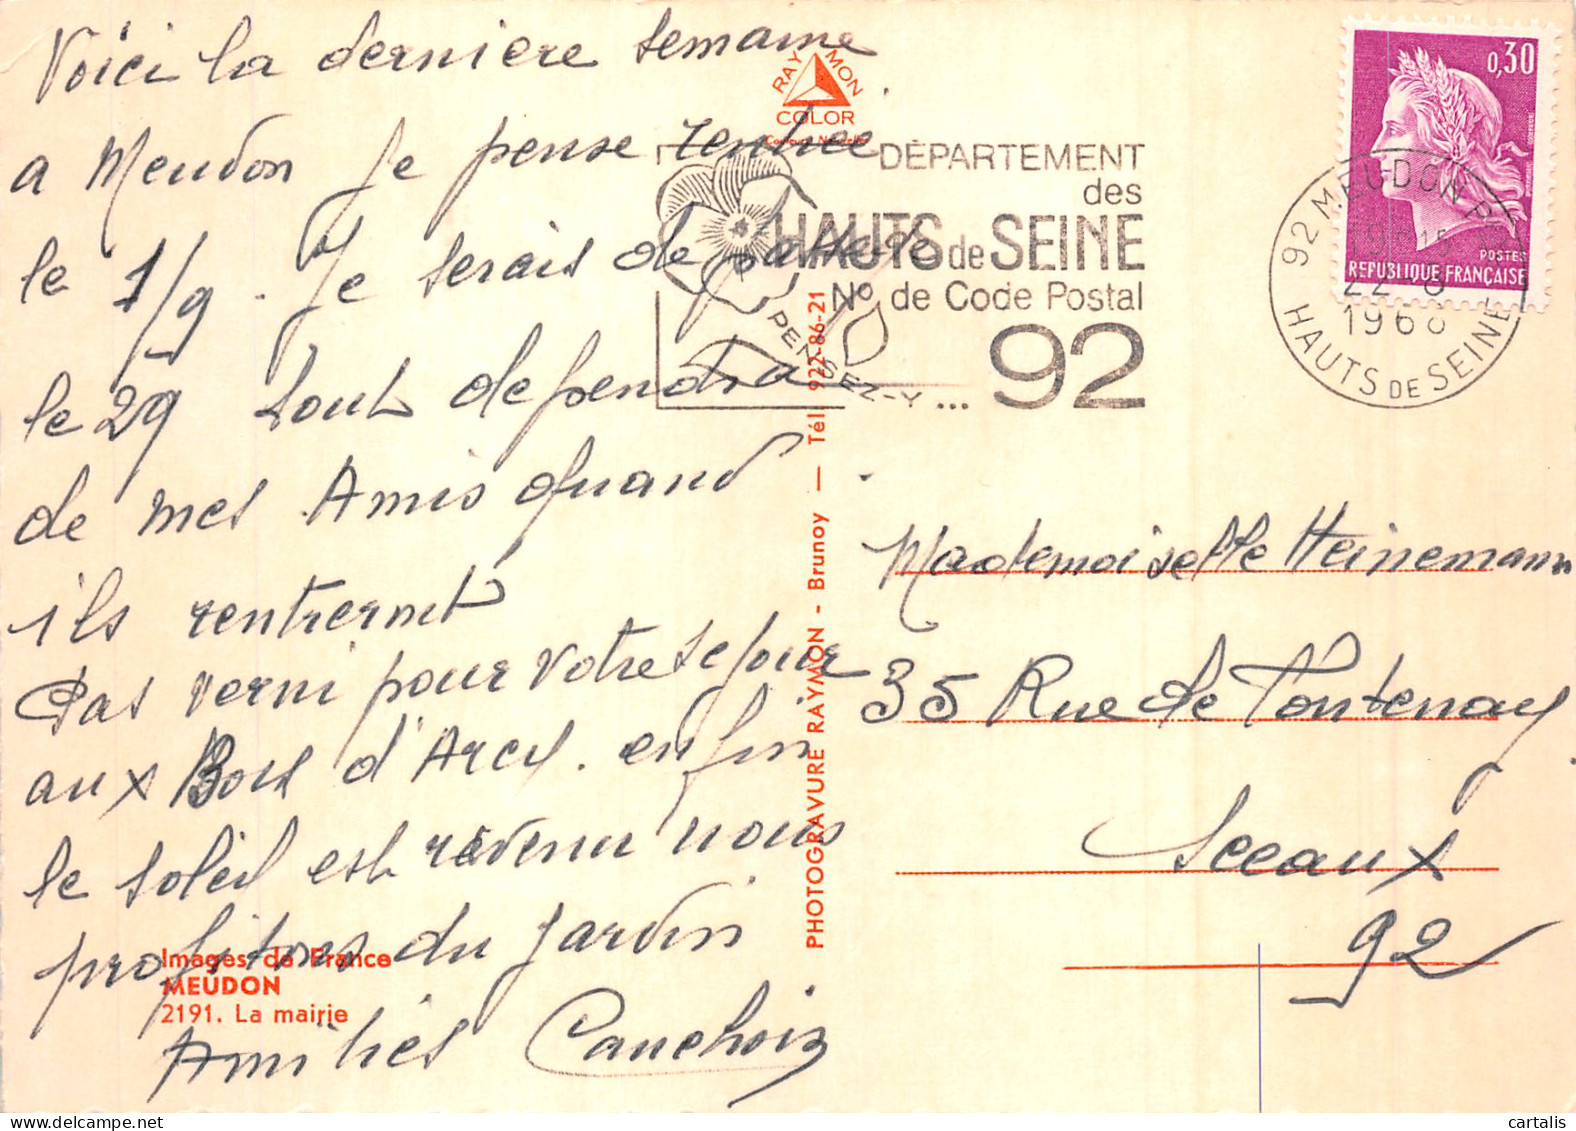 Voici la derniere semaine
a Meudon Je pense rentree
le 1/9. Je serais de passage
le 29 tout dependra
de mes Amis quand
ils rentreront
Pas verni pour votre sejour
aux Bois d'Arcy. enfin
le soleil est revenu nous
profitons du jardin
Amitiés Cauchoix
Images de France
MEUDON
2191. La mairie
RAYMON
COLOR
PHOTOGRAVURE RAYMON - Brunoy — Tél. 922-86-21
DÉPARTEMENT
des
HAUTS de SEINE
N° de Code Postal
92
PENSEZ-Y...
0,30
POSTES
REPUBLIQUE FRANÇAISE
92 MEUDON
22-8
1968
HAUTS DE SEINE
Mademoiselle Heinemann
35 Rue de Fontenay
Sceaux
92
cartalis